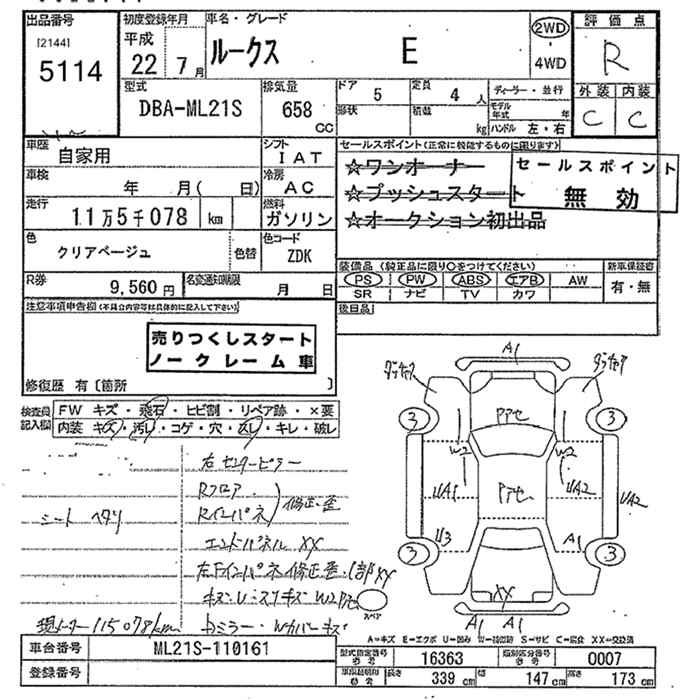 出品番号 初度登録年月 車名・グレード 評価点
[2144] 平成 ルークス E 2WD R
5114 22年 7月 4WD 外装 内装
型式 排気量 ドア 5 定員 4人 ディーラー・並行 C C
DBA-ML21S 658 cc 形状 積載 kg モデル年式 年
ハンドル 左・右
車歴 シフト セールスポイント(正常に機能するものに限ります)
自家用 IAT ☆ワンオーナー セールスポイント
車検 年 月( 日) 冷房 AC ☆プッシュスタート 無効
走行 11万5千078 km 燃料 ガソリン ☆オークション初出品
色 色替 色コード
クリアベージュ ZDK
装備品(純正品に限り○をつけてください) 新車保証書
R券 9,560円 名変通知期限 月 日 PS PW ABS エアB AW 有・無
SR ナビ TV カワ
注意事項申告欄(不具合内容等は具体的に記入して下さい) 後日品
売りつくしスタート
ノークレーム車
修復歴 有〔箇所 〕
検査員記入欄 FW キズ・飛石・ヒビ割・リペア跡・×要
内装 キズ・汚レ・コゲ・穴・スレ・キレ・破レ
A1
3 3
W2 W2
UA1 UA2 UA2
U3 A1
3 3
XX
A1 A1
スペア
右センターピラー
Rフロア
Rインパネ 修正・歪
シート ヘタリ
エンドパネル XX
現メーター115078km
A=キズ E=エクボ U=凹み W=補修跡 S=サビ C=腐食 XX=交換済
車台番号 ML21S-110161 型式指定番号 参考 16363 類別区分番号 参考 0007
登録番号 長さ 339 cm 幅 147 cm 高さ 173 cm